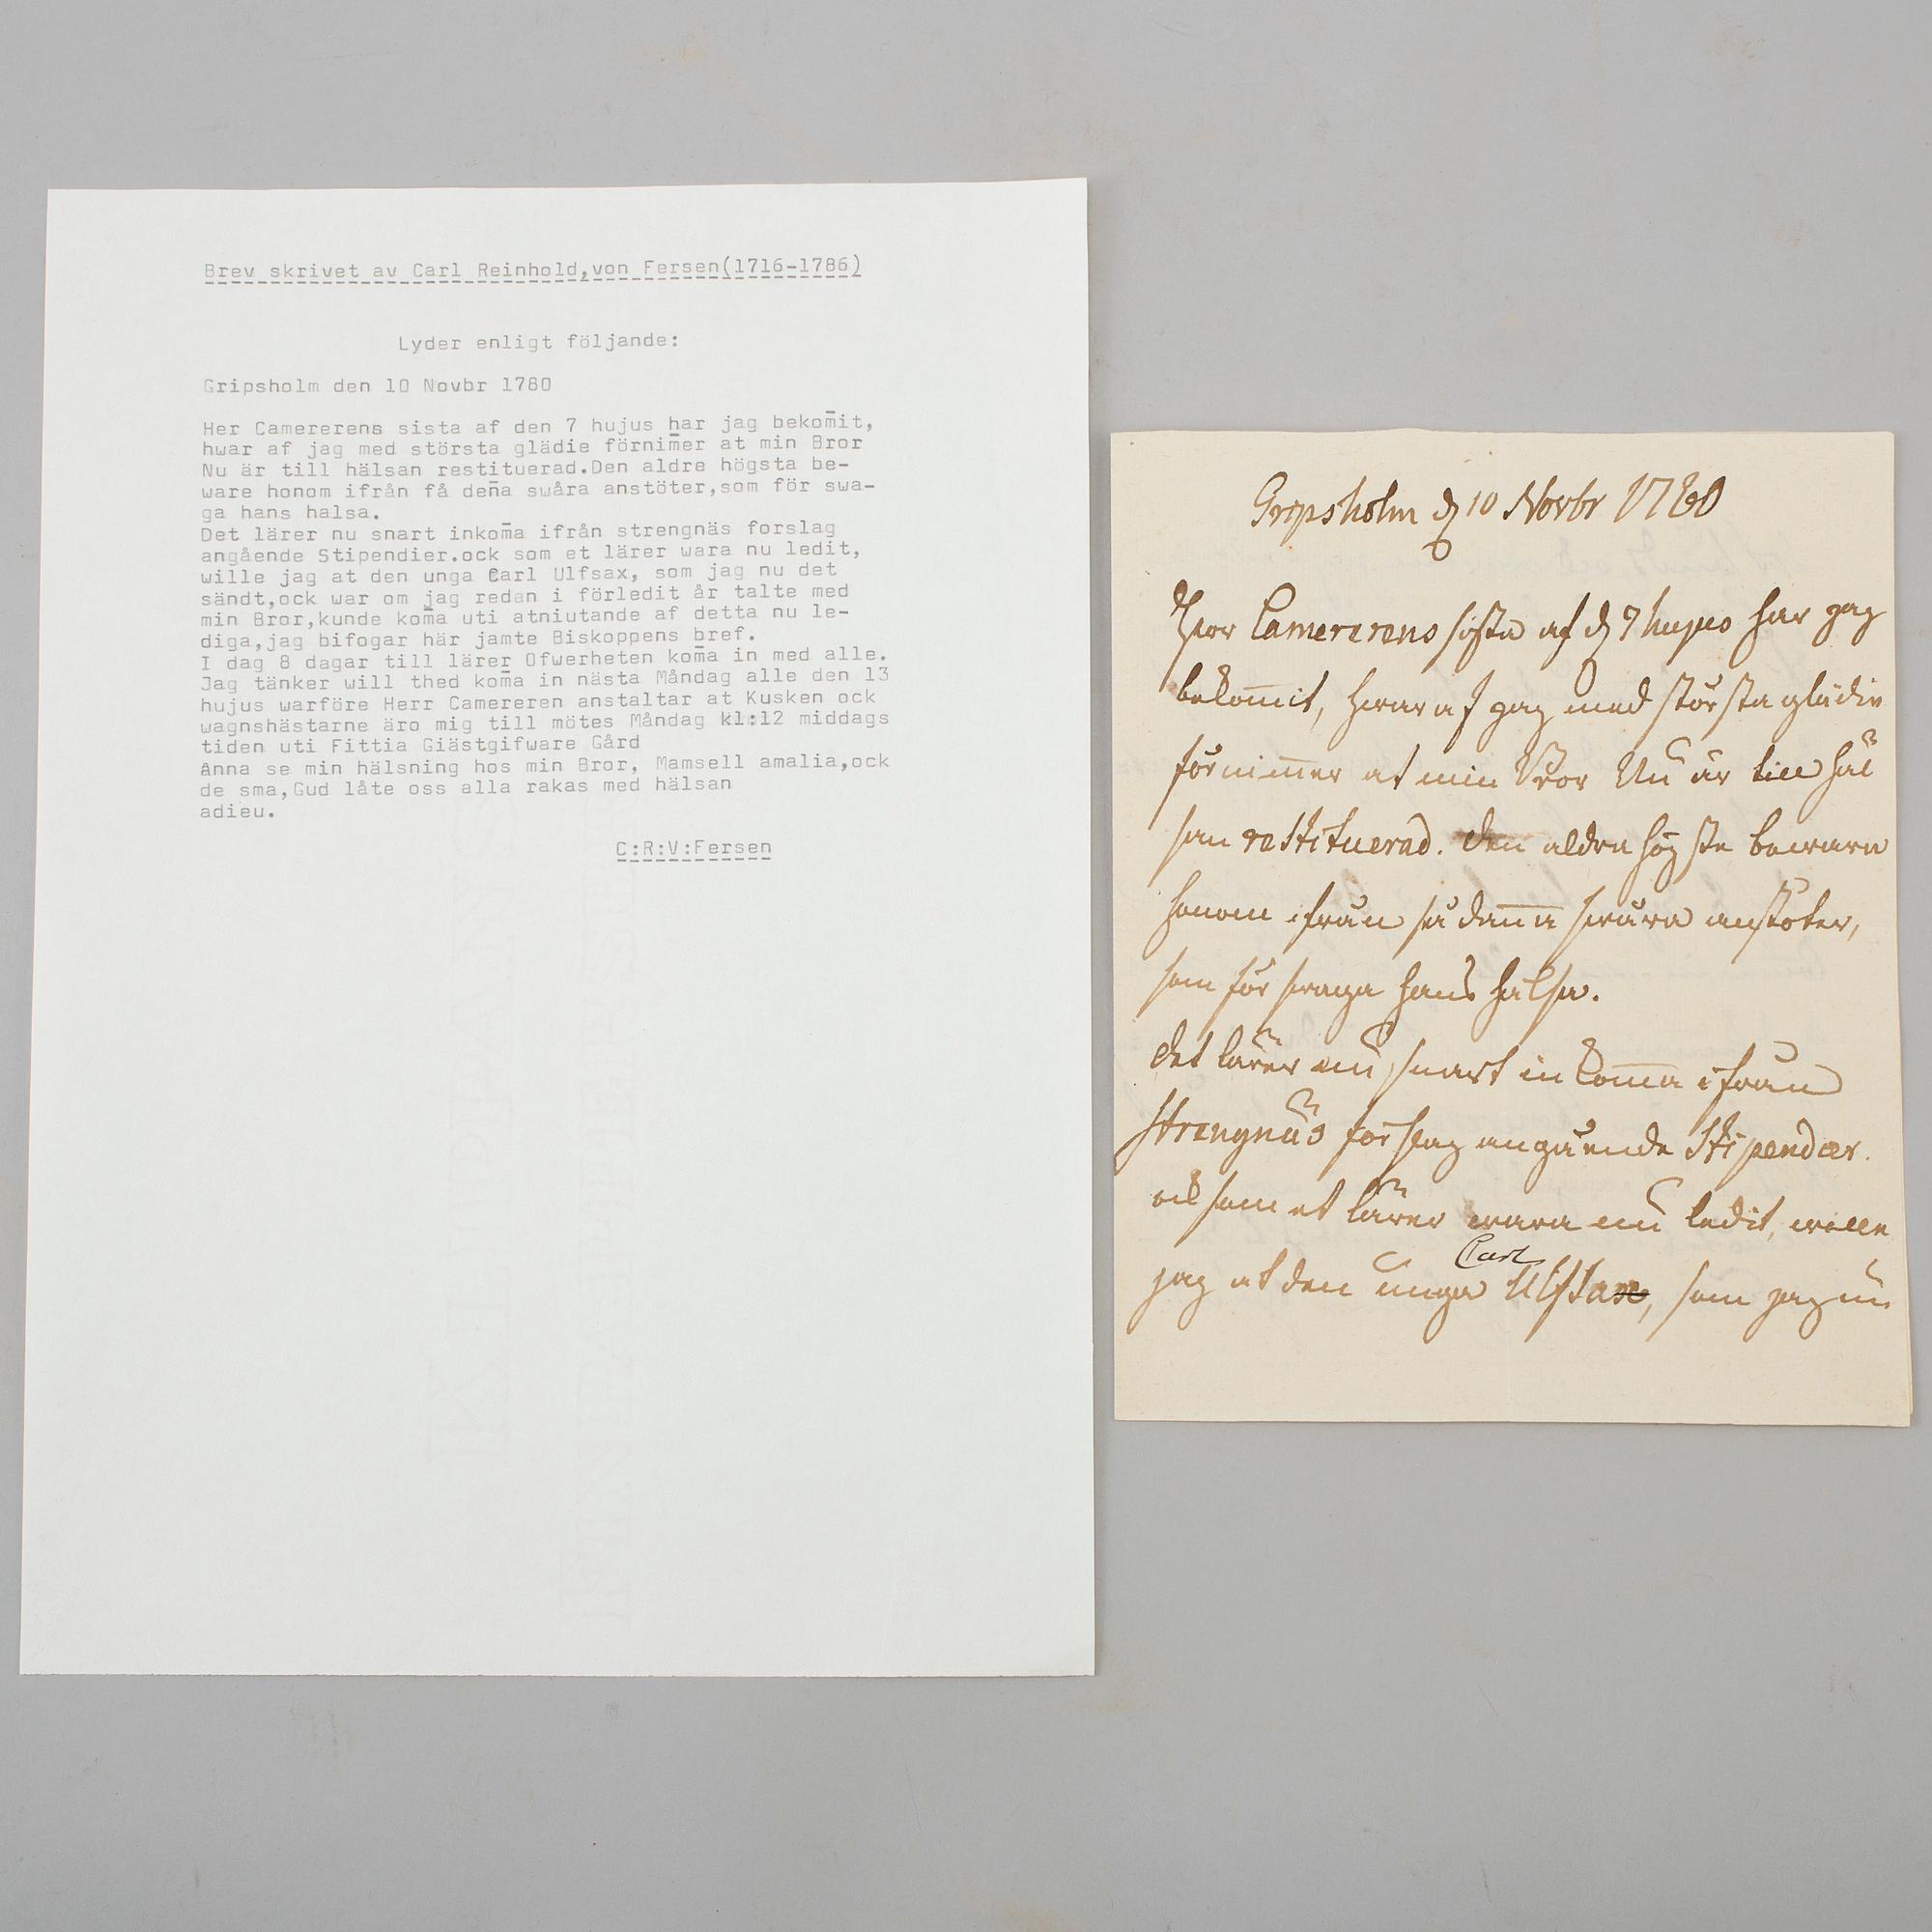 Brev skrivet av Carl Reinhold,von Fersen(1716-1786)
Lyder enligt följande:
Gripsholm den 10 Novbr 1780
Her Camererens sista af den 7 hujus har jag bekom̄it,
hwar af jag med största glädie förnim̄er at min Bror
Nu är till hälsan restituerad.Den aldre högsta be-
ware honom ifrån få den̄a swåra anstöter,som för swa-
ga hans halsa.
Det lärer nu snart inkom̄a ifrån strengnäs forslag
angående Stipendier.ock som et lärer wara nu ledit,
wille jag at den unga Carl Ulfsax, som jag nu det
sändt,ock war om jag redan i förledit år talte med
min Bror,kunde kom̄a uti atniutande af detta nu le-
diga,jag bifogar här jamte Biskoppens bref.
I dag 8 dagar till lärer Ofwerheten kom̄a in med alle.
Jag tänker will thed kom̄a in nästa Måndag alle den 13
hujus warföre Herr Camereren anstaltar at Kusken ock
wagnshästarne äro mig till mötes Måndag kl:12 middags
tiden uti Fittia Giästgifware Gård
ånna se min hälsning hos min Bror, Mamsell amalia,ock
de sma,Gud låte oss alla rakas med hälsan
adieu.
C:R:V:Fersen
Gripsholm d 10 Novbr 1780
Herr Camererens sista af d 7 hujus har jag
bekom̄it, hwar af jag med största glädie
förnim̄er at min Bror Nu är till häl
san restituerad. Den aldra högste beware
honom ifrån sådan̄a swåra anstöter,
som för swaga hans hälsa.
det lärer nu snart in kom̄a ifrån
strengnäs förslag angående Stipendier.
ock som et lärer wara nu ledit, wille
jag at den unga Carl Ulfsax, som jag nu